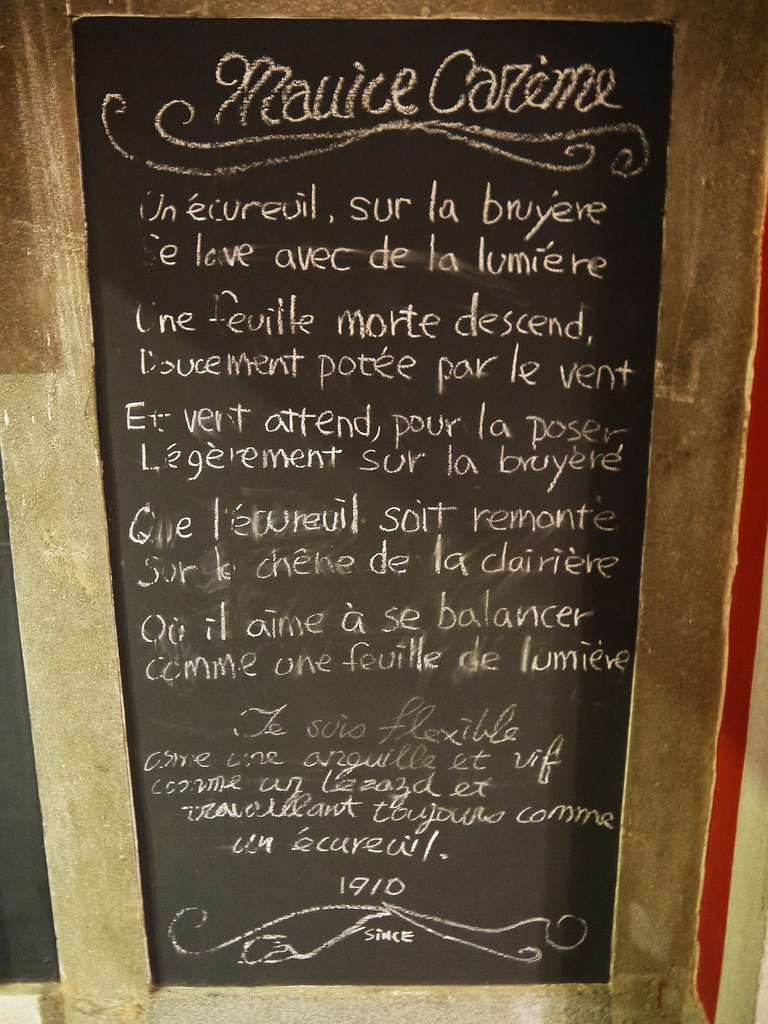 Mauice Carême
Un écureuil, sur la bruyère
Se lave avec de la lumière
Une feuille morte descend,
Doucement potée par le vent
Et vent attend, pour la poser
Légèrement sur la bruyère
Que l'écureuil soit remonte
Sur le chêne de la clairière
Où il aime à se balancer
comme une feuille de lumière
Je suis flexible
comme une anguille et vif
comme un Lézard et
travaillant toujours comme
un écureuil.
1910
SINCE